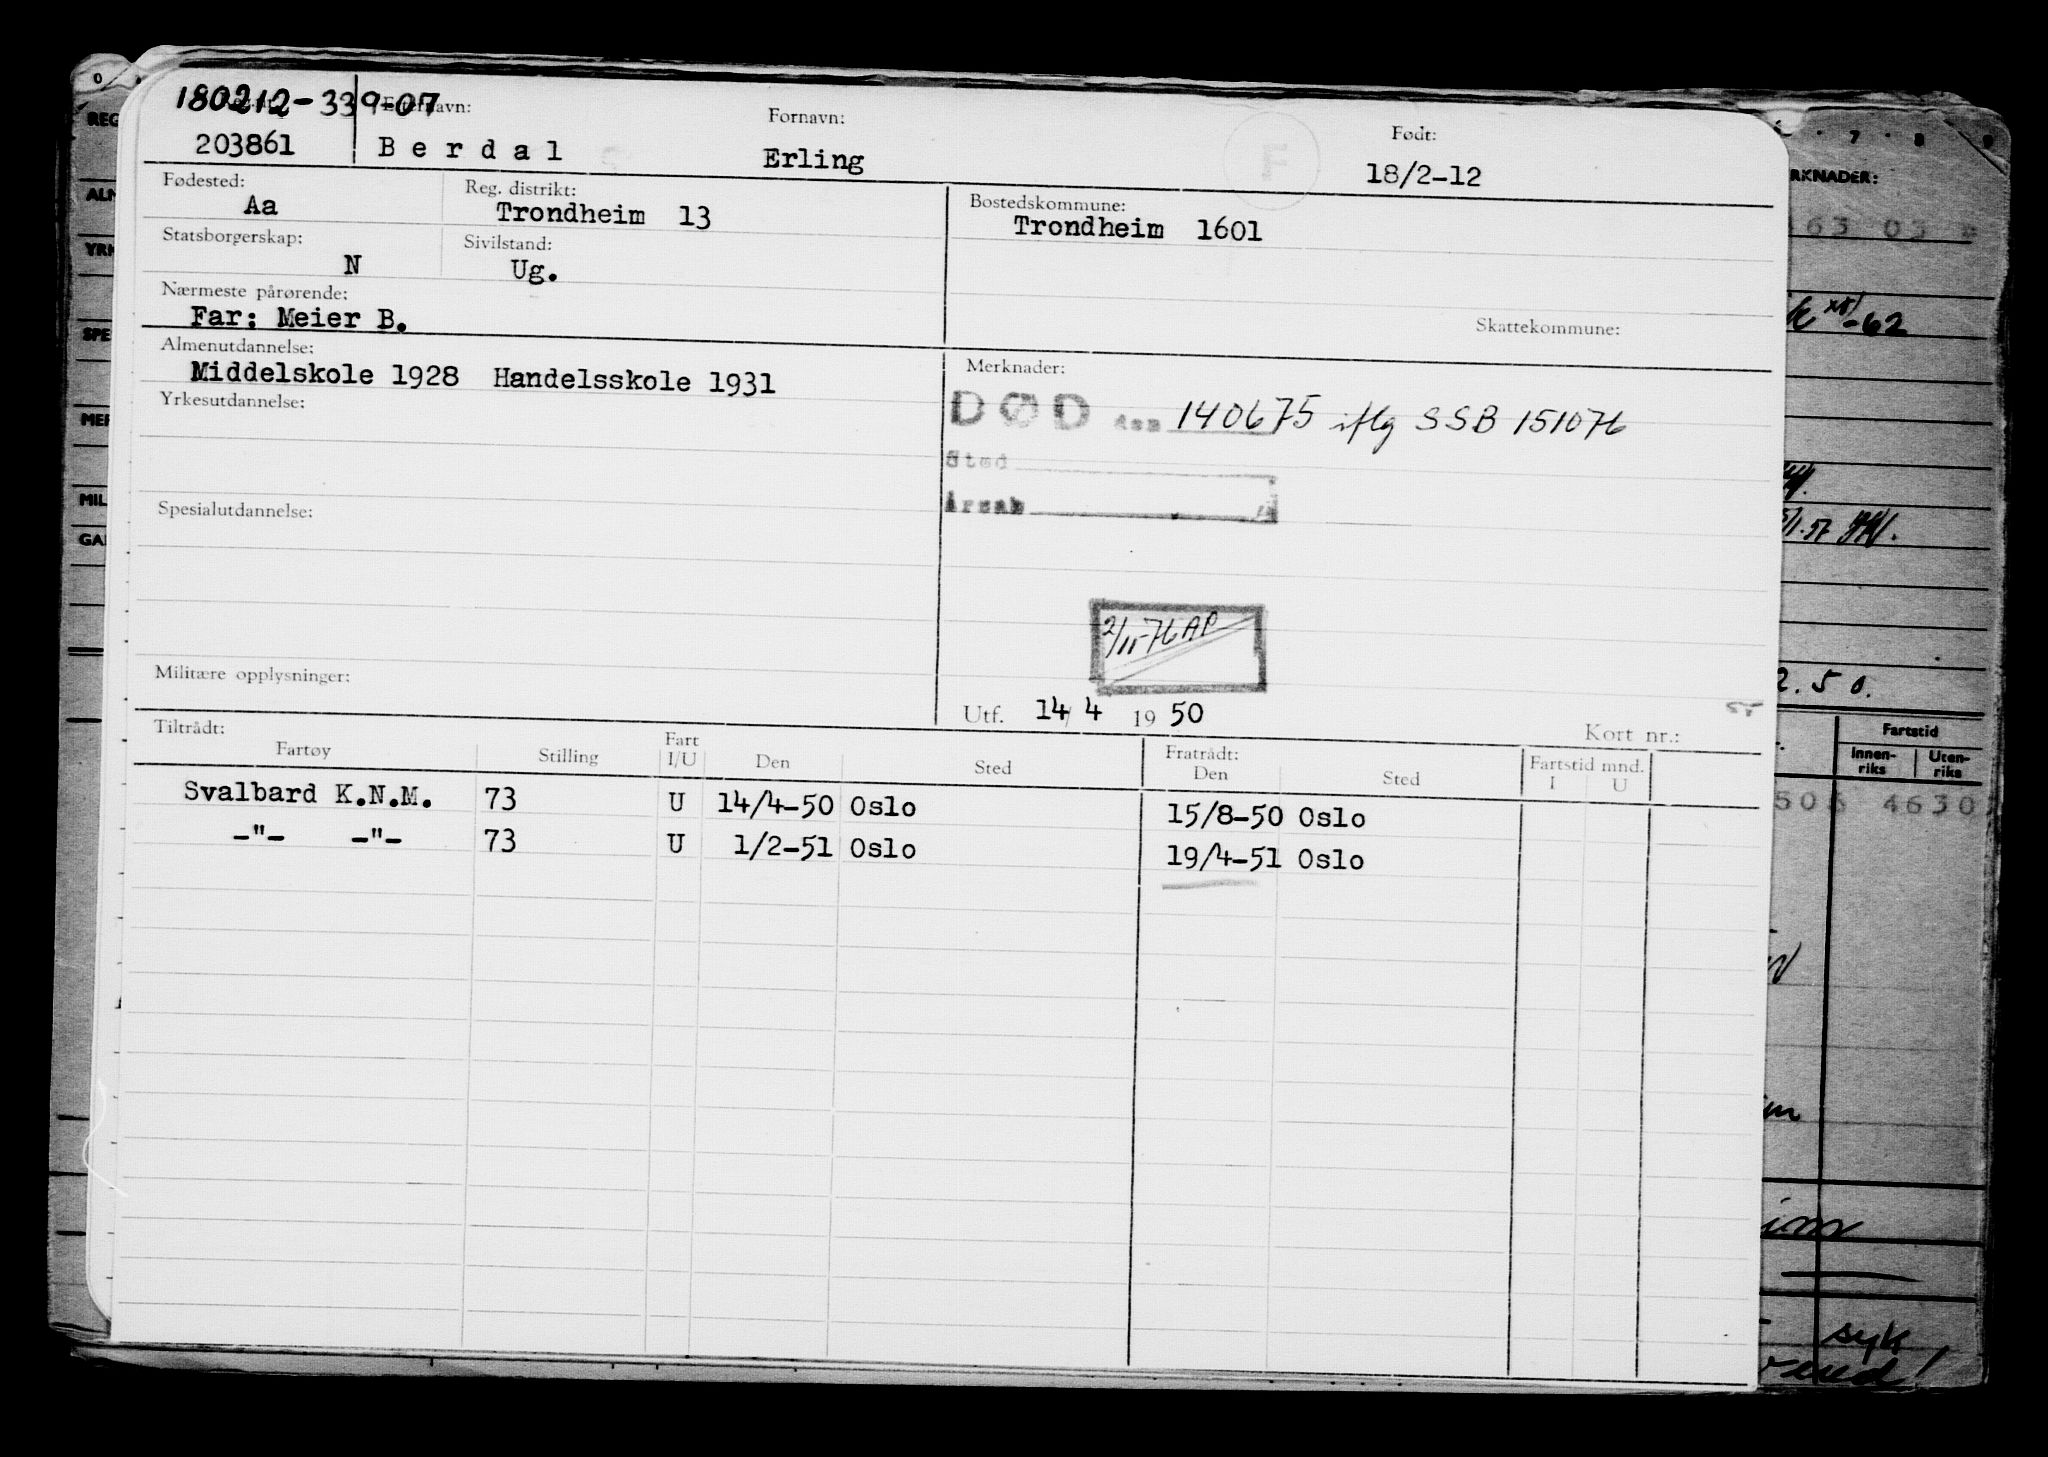 180212-339-07
Etternavn:
Fornavn:
Født:
203861 Berdal Erling 18/2-12
Fødested: Reg. distrikt: Bostedskommune:
Aa Trondheim 13 Trondheim 1601
Statsborgerskap: Sivilstand:
N Ug.
Nærmeste pårørende:
Far: Meier B.
Skattekommune:
Almenutdannelse: Merknader:
Middelskole 1928 Handelsskole 1931
Yrkesutdannelse:
DØD den 140675 iflg SSB 151076
Sted
Årsak
Spesialutdannelse:
2/11-76 AP
Militære opplysninger:
Utf. 14/4 1950 Kort nr.:
Tiltrådt: Fratrådt:
Fartøy Stilling Fart I/U Den Sted Den Sted Fartstid mnd. I U
Svalbard K.N.M. 73 U 14/4-50 Oslo 15/8-50 Oslo
-"- -"- 73 U 1/2-51 Oslo 19/4-51 Oslo
0
REG
ALM
YRK
SPE
MER
MIL
GA
7 8 9
RKNADER:
63 03
-62
/1.57
2.50.
Fartstid
Innen-
riks
Uten-
riks
50 4630
im
syk